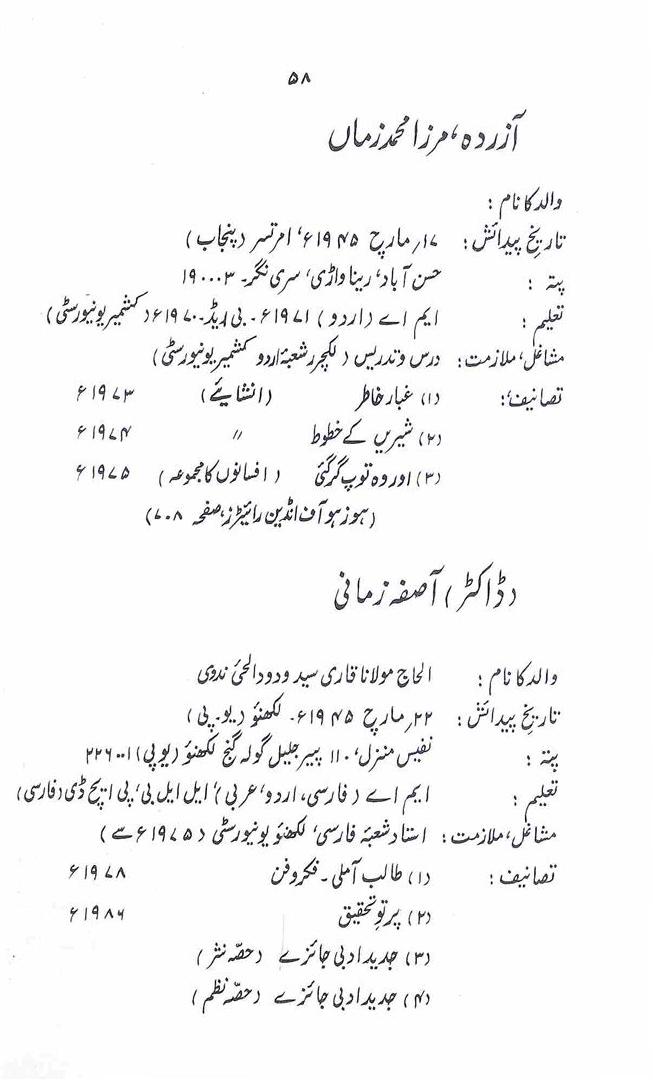 ۵۸
آزردہ، مرزا محمد زماں
والد کا نام :
تاریخ پیدائش : ۱۷؍ مارچ ۱۹۴۵ء، امرتسر (پنجاب)
پتہ : حسن آباد، رینا واڑی، سری نگر۔ ۱۹۰۰۰۳
تعلیم : ایم اے (اردو) ۱۹۷۱ء۔ بی ایڈ۔ ۱۹۷۰ء (کشمیر یونیورسٹی)
مشاغل، ملازمت : درس و تدریس (لکچرر شعبۂ اردو کشمیر یونیورسٹی)
تصانیف : (۱) غبار خاطر (انشائیے) ۱۹۷۳ء
(۲) شیریں کے خطوط // ۱۹۷۴ء
(۳) اور وہ توپ گر گئی (افسانوں کا مجموعہ) ۱۹۷۵ء
(ہوز ہو آف انڈین رائیٹرز، صفحہ ۷۰۸)
(ڈاکٹر) آصفہ زمانی
والد کا نام : الحاج مولانا قاری سید ودود الحئ ندوی
تاریخ پیدائش : ۲۲؍ مارچ ۱۹۴۵ء۔ لکھنؤ (یو۔پی)
پتہ : نفیس منزل، ۱۱۰ پیر جلیل گولہ گنج لکھنؤ (یوپی) ۲۲۶۰۰۱
تعلیم : ایم اے (فارسی، اردو، عربی)، ایل ایل بی، پی ایچ ڈی (فارسی)
مشاغل، ملازمت : استاد شعبۂ فارسی، لکھنؤ یونیورسٹی (۱۹۷۵ء سے)
تصانیف : (۱) طالب آملی۔ فکر و فن ۱۹۷۸ء
(۲) پرتوِ تحقیق ۱۹۸۶ء
(۳) جدید ادبی جائزے (حصّہ نثر)
(۴) جدید ادبی جائزے (حصّہ نظم)